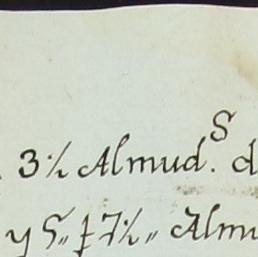 3½ Almud.s d
y 5,, ƒ 7½ ,, Almu